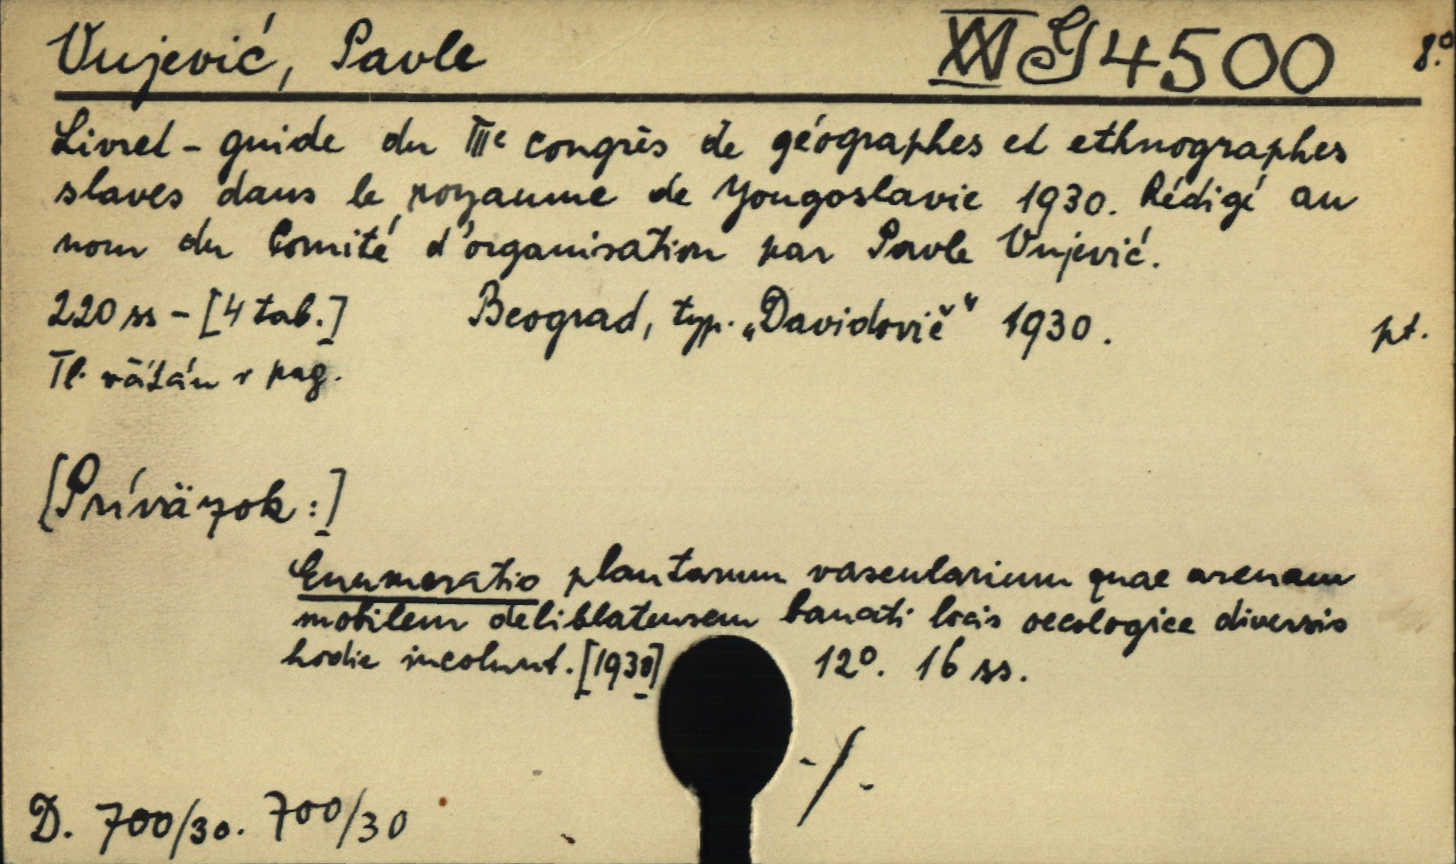 Vujević, Pavle XXI G 4500 8.°
Livret-guide du IIIe congrès de géographes et ethnographes
slaves dans le royaume de Yougoslavie 1930. Rédigé au
nom du Comité d'organisation par Pavle Vujević.
220 ss - [4 tab.] Beograd, typ. „Davidovič" 1930. pt.
Tl. váz. pag.
[Prívӓzok:]
Enumeratio plantarum vascularium quae arenam
mobilem deliblatensem banati locis oecologice diversis
hodie incolunt. [1930] 12°. 16 ss.
-/-
D. 700/30. 700/30